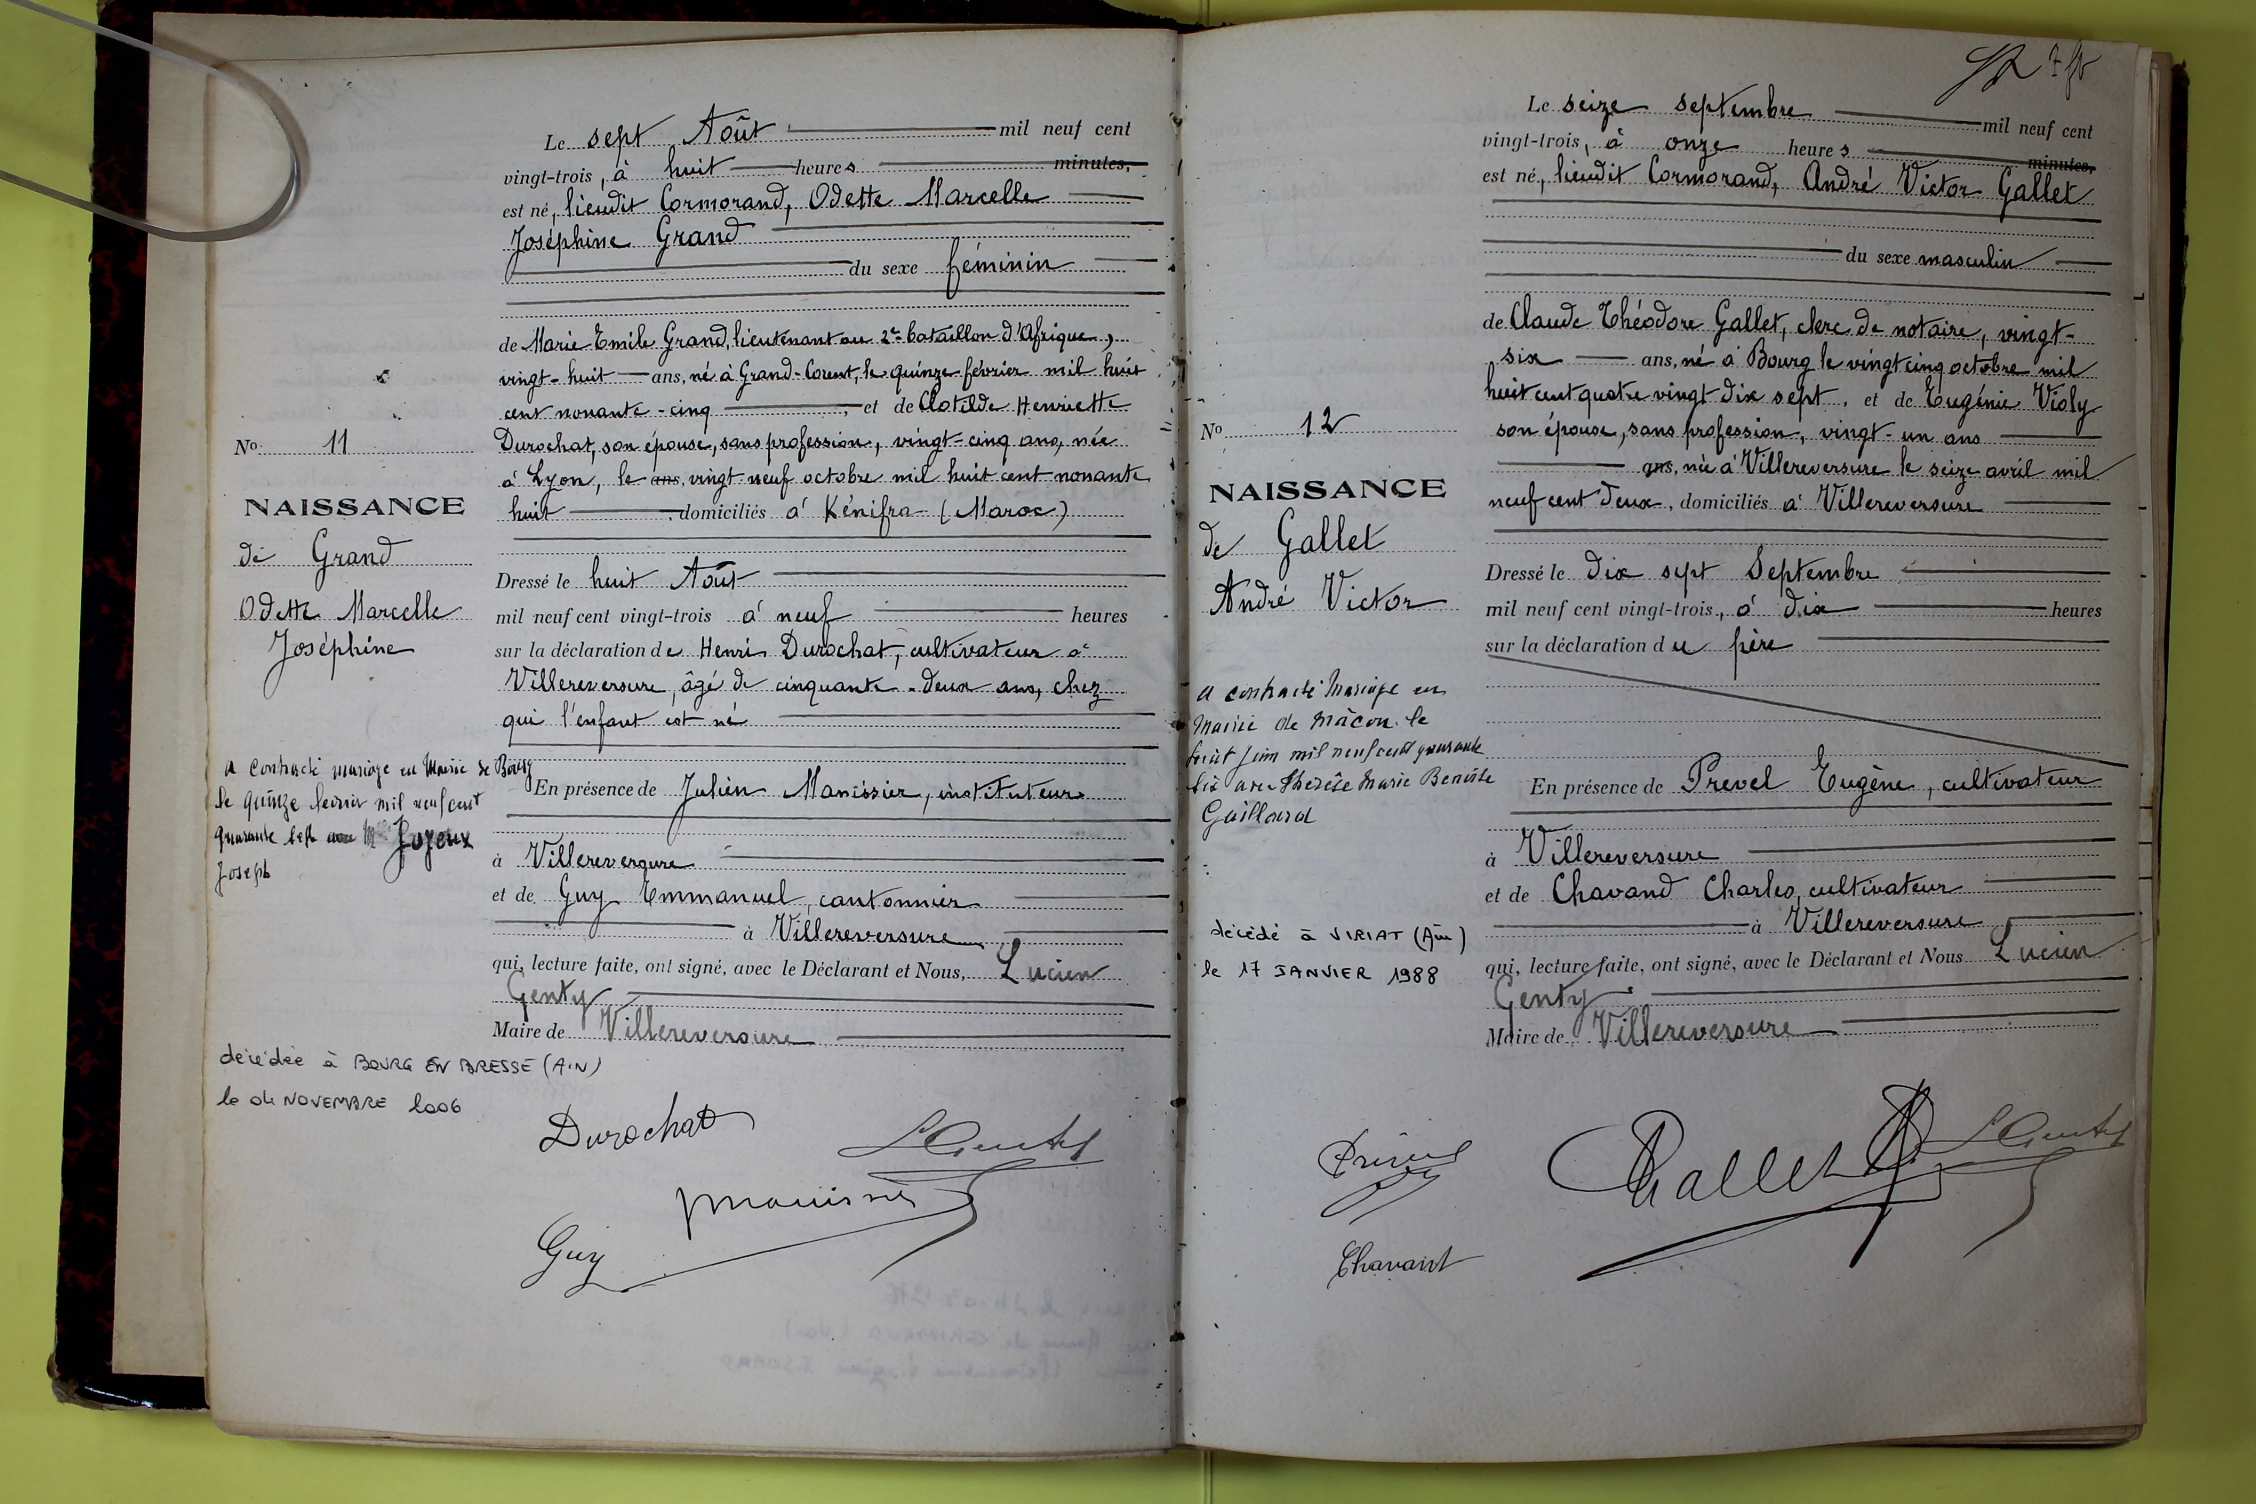 Le sept Août mil neuf cent
vingt-trois, à huit heures minutes,
est né, lieudit Cormorand, Odette Marcelle
Joséphine Grand
du sexe féminin
de Marie Emile Grand, lieutenant au 2e bataillon d'Afrique,
vingt-huit ans, né à Grand-Corent, le quinze février mil huit
cent nonante-cinq, et de Clotilde Henriette
Durochat, son épouse, sans profession, vingt-cinq ans, née
à Lyon, le ans, vingt-neuf octobre mil huit cent nonante
huit, domiciliés à Kénifra (Maroc)
Dressé le huit Août
mil neuf cent vingt-trois à neuf heures
sur la déclaration de Henri Durochat, cultivateur à
Villereversure, âgé de cinquante-deux ans, chez
qui l'enfant est né
En présence de Julien Manissier, instituteur
à Villereversure
et de Guy Emmanuel, cantonnier
à Villereversure
qui, lecture faite, ont signé, avec le Déclarant et Nous, Lucien
Genty
Maire de Villereversure
Durochat
LGenty
Manissier
Guy
No 11
NAISSANCE
de Grand
Odette Marcelle
Joséphine
a contracté mariage en Mairie de Bourg
le quinze février mil neuf cent
quarante sept avec Mr Joyeux
Joseph
décédée à BOURG EN BRESSE (AIN)
le 04 NOVEMBRE 2006
Le seize septembre mil neuf cent
vingt-trois, à onze heures minutes,
est né, lieudit Cormorand, André Victor Gallet
du sexe masculin
de Claude Théodore Gallet, clerc de notaire, vingt-
six ans, né à Bourg le vingt cinq octobre mil
huit cent quatre vingt dix sept, et de Eugénie Violy
son épouse, sans profession, vingt-un ans
ans, née à Villereversure le seize avril mil
neuf cent deux, domiciliés à Villereversure
Dressé le dix sept Septembre
mil neuf cent vingt-trois, à dix heures
sur la déclaration du père
En présence de Prevel Eugène, cultivateur
à Villereversure
et de Chavand Charles, cultivateur
à Villereversure
qui, lecture faite, ont signé, avec le Déclarant et Nous Lucien
Genty
Maire de Villereversure
Gallet
LGenty
Chavant
No 12
NAISSANCE
de Gallet
André Victor
a contracté mariage en
Mairie de Mâcon le
huit juin mil neuf cent quarante
six avec Thérèse Marie Benoîte
Gaillard
décédé à VIRIAT (Ain)
le 17 JANVIER 1988